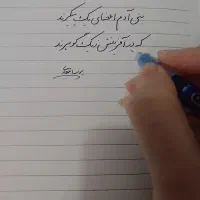 بنی آدم اعضای یک پیکرند
که در آفرینش ز یک گوهرند